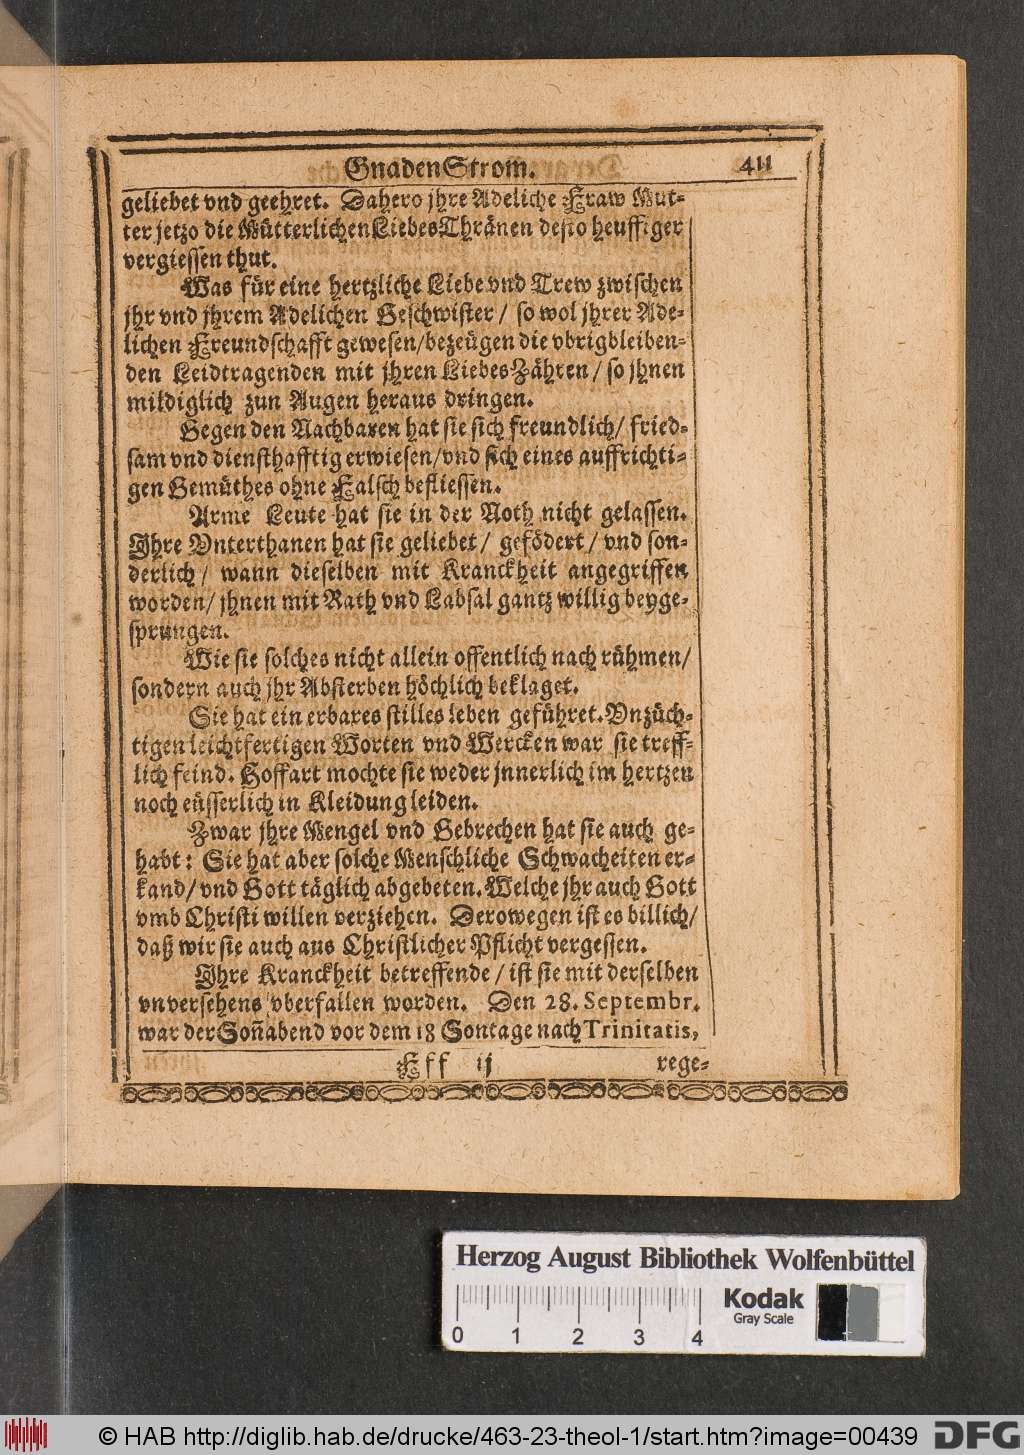 GnadenStrom. 411
geliebet vnd geehret. Dahero jhre Adeliche Fraw Mut-
ter jetzo die MütterlichenLiebesThränen desto heuffiger
vergiessen thut.
Was für eine hertzliche Liebe vnd Trew zwischen
jhr vnd jhrem Adelichen Geschwister/ so wol jhrer Ade-
lichen Freundschafft gewesen/bezeügen die vbrigbleiben-
den Leidtragenden mit jhren LiebesZähren/ so jhnen
mildiglich zun Augen heraus dringen.
Gegen den Nachbaren hat sie sich freundlich/ fried-
sam vnd diensthafftig erwiesen/vnd sich eines auffrichti-
gen Gemüthes ohne Falsch befliessen.
Arme Leute hat sie in der Noth nicht gelassen.
Ihre Vnterthanen hat sie geliebet/ gefödert/ vnd son-
derlich/ wann dieselben mit Kranckheit angegriffen
worden/ jhnen mit Rath vnd Labsal gantz willig beyge-
sprungen.
Wie sie solches nicht allein offentlich nach rühmen/
sondern auch jhr Absterben höchlich beklaget.
Sie hat ein erbares stilles leben geführet. Vnzüch-
tigen leichtfertigen Worten vnd Wercken war sie treff-
lich feind. Hoffart mochte sie weder jnnerlich im hertzen
noch eüsserlich in Kleidung leiden.
Zwar jhre Mengel vnd Gebrechen hat sie auch ge-
habt: Sie hat aber solche Menschliche Schwacheiten er-
kand/ vnd Gott täglich abgebeten. Welche jhr auch Gott
vmb Christi willen verziehen. Derowegen ist es billich/
daß wir sie auch aus Christlicher Pflicht vergessen.
Ihre Kranckheit betreffende/ ist sie mit derselben
vnversehens vberfallen worden. Den 28. Septembr.
war der Soñabend vor dem 18 Sontage nach Trinitatis,
Fff ij rege-
Herzog August Bibliothek Wolfenbüttel
0 1 2 3 4
Kodak
Gray Scale
© HAB http://diglib.hab.de/drucke/463-23-theol-1/start.htm?image=00439
DFG